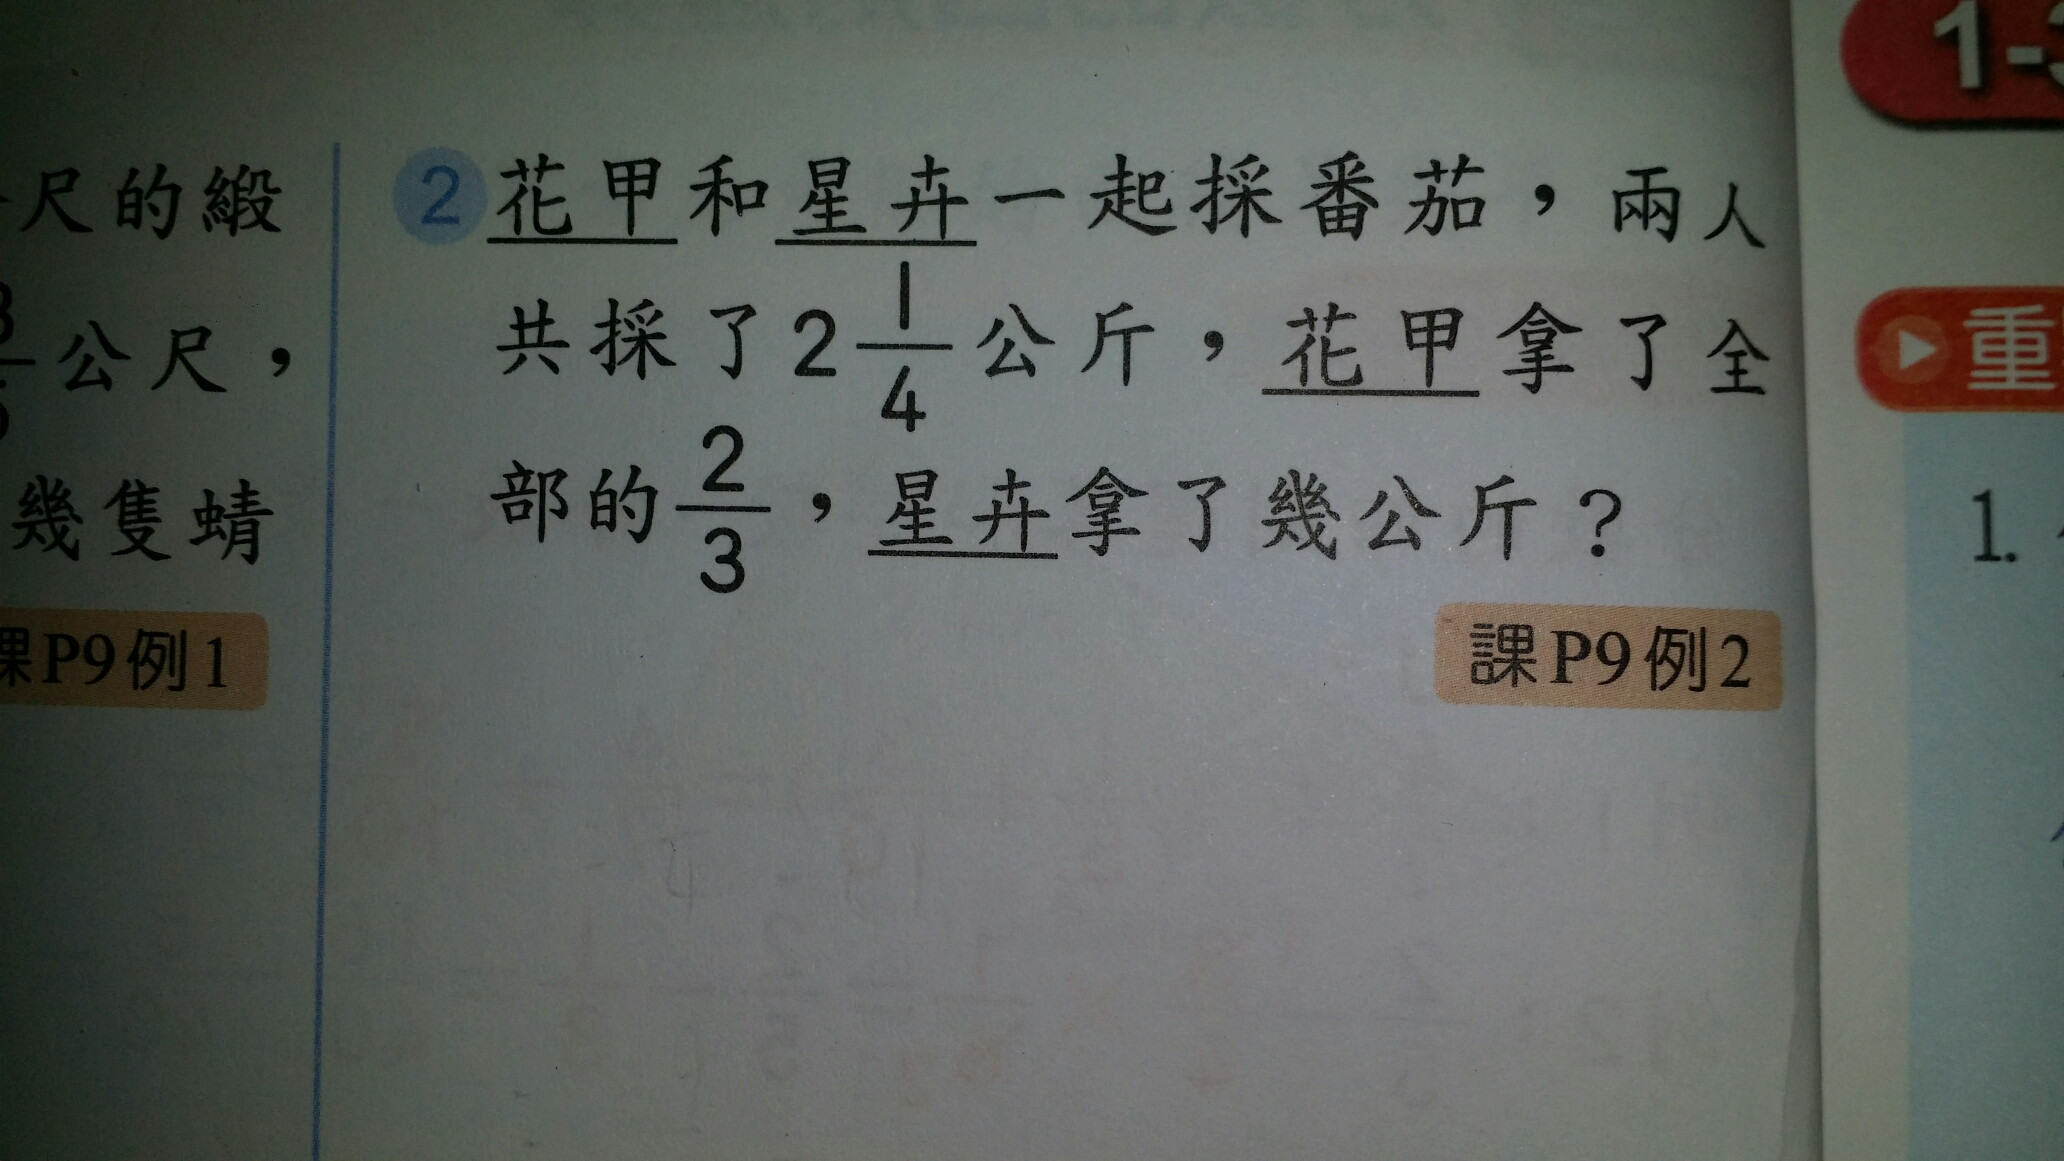 尺的緞
公尺，
幾隻蜻
課P9例1
2 花甲和星卉一起採番茄，兩人
共採了2 1/4 公斤，花甲拿了全
部的 2/3，星卉拿了幾公斤？
課P9例2
重
1.